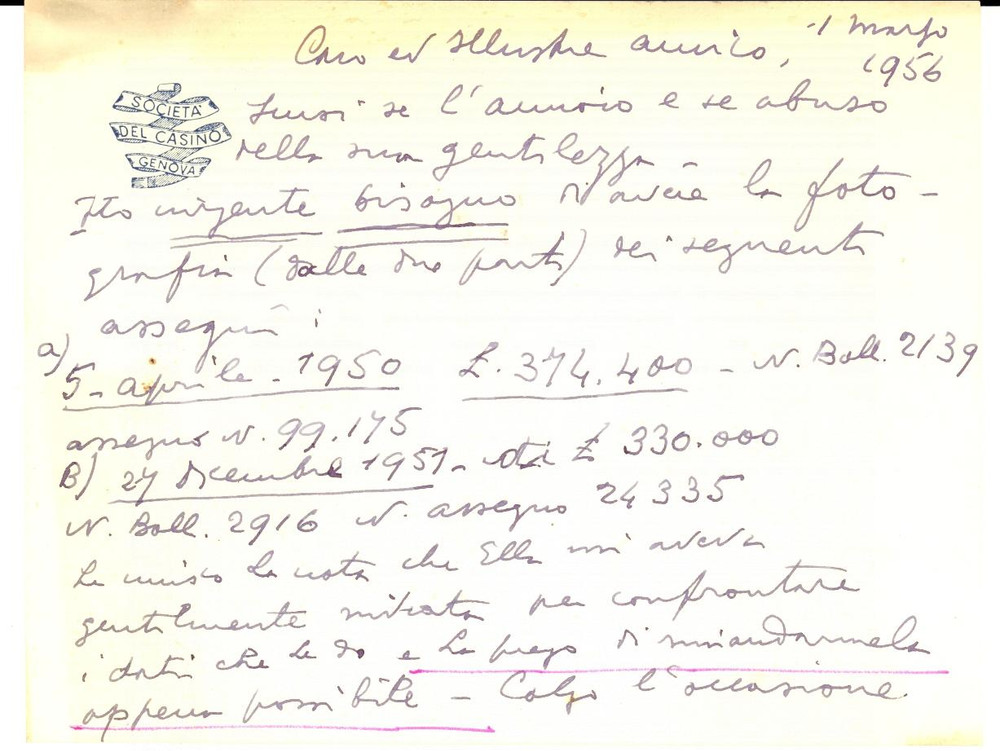 Caro ed Illustre amico,
1 Marzo
1956
SOCIETA'
DEL CASINO
GENOVA
Scusi se l'annoio e se abuso
della sua gentilezza -
Ho urgente bisogno di avere la foto-
grafia (dalle due parti) dei seguenti
assegni:
a)
5 - aprile - 1950 £. 374.400 - N. Boll. 2139
assegno N. 99.175
B) 27 Dicembre 1951 - di £ 330.000
N. Boll. 2916 N. assegno 24335
Le unisco la nota che Ella mi aveva
gentilmente inviata per confrontare
i dati che le do e La prego di rimandarmela
appena possibile - Colgo l'occasione